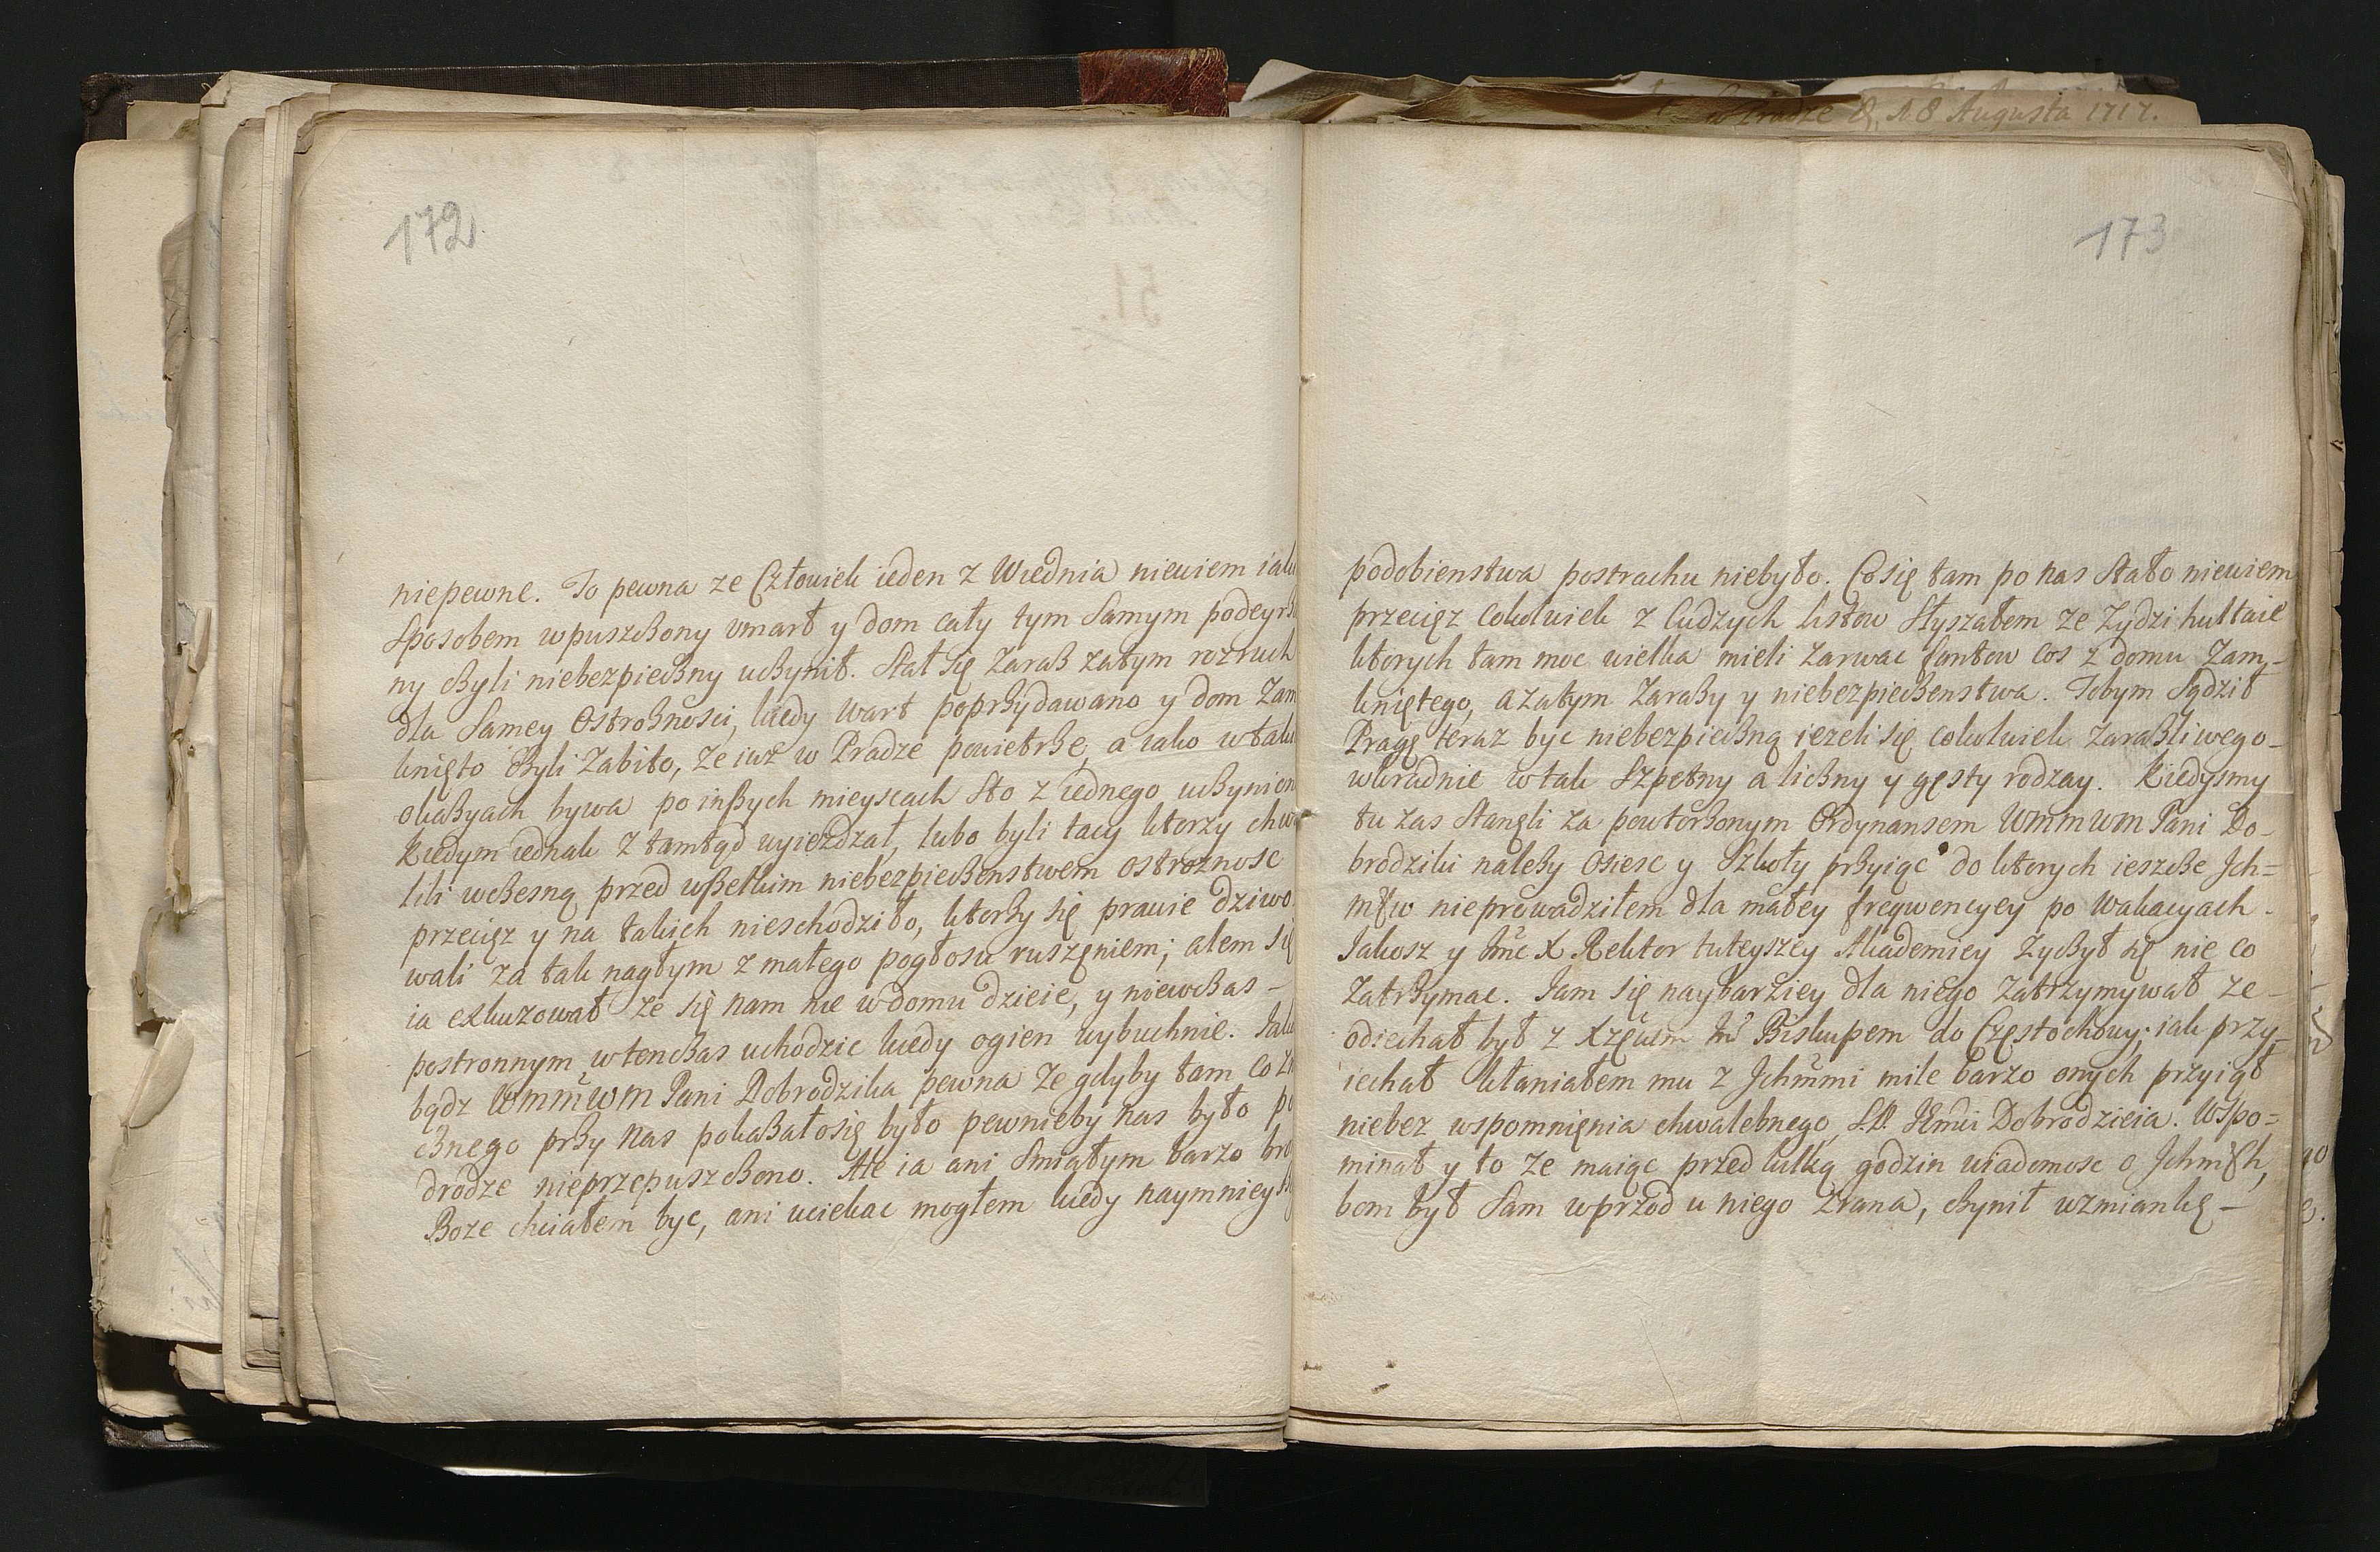 w Pradze d. 18 Augusta 1717.
172
niepewne. To pewna ze Człowiek ieden z Wiednia niewiem iak
Sposobem wpuszczony umarł y dom cały tym Samym podeyrz
ny czyli niebezpieczny uczynił. Stał się Zaraz zatym rozruch
dla Samey Ostrożnosci, kiedy wart poprzydawano y dom Zam
knięto czyli Zabito, Ze iuż w Pradze powietrze, a iako w tak
okazyach bywa po inszych mieyscach Sto z iednego uczynion
Kiedym iednak z tamtąd wyieżdżał, lubo byli tacy ktorzy chwa
lili wczesną przed wszelkim niebezpieczenstwem ostroznosc
przecięz y na takich nieschodziło, ktorzy się prawie dziwo
wali za tak nagłym z małego pogłosu ruszęniem; alem się
ia exkuzował że się nam nie w domu dzieie, y niewczas-
postronnym wtenczas uchodzic kiedy ogien wybuchnie. Jak
bądz WMMWM Pani Dobrodzika pewna Ze gdyby tam co Zn
cznego przy nas pokazało się było pewnieby nas było po
drodze nieprzepuszczono. Ale ia ani Smiałym barzo bro
Boze chciałem byc, ani uciekac mogłem kiedy naymniey
173
podobienstwa postrachu niebyło. Co się tam po nas stało niewiem
przecięz cokolwiek z Cudzych listow Słyszałem ze Zydzi hultaie
ktorych tam moc wielka mieli Zarwac fantow cos z domu Zam-
kniętego, a zatym Zarazy y niebezpieczenstwa. Tobym Sądził
Pragę teraz byc niebezpieczną iezeli się cokolwiek Zarazliwego-
wkradnie w tak Szpetny a liczny y gęsty rodzay. Kiedysmy
tu zas Stanęli za powtorzonym Ordynansem WMMWM Pani Do-
brodziki nalezy Osiesc y Szkoły przyiąc do ktorych ieszcze Jch=
mcw nieprowadziłem dla małey freqwencyey po Wakacyach.
Jakosz y Jmc X Rektor tuteyszey Akademiey Zyczył się nie co
Zatrzymac. Jam się naybarziey dla niego Zatrzymywał ze-
odiechał był z Xzęciem Jm Biskupem do Częstochowy; iak przy-
iechał kłaniałem mu z Jchmmi mile barzo onych przyiął
niebez wspomnięnia chwalebnego, S.P. Jmci Dobrodzieia. Wspo=
minał y to Ze maiąc przed kilką godzin wiadomosc o Jchmch,
bom był Sam wprzod u niego Zrana, czynił wzmiankę-